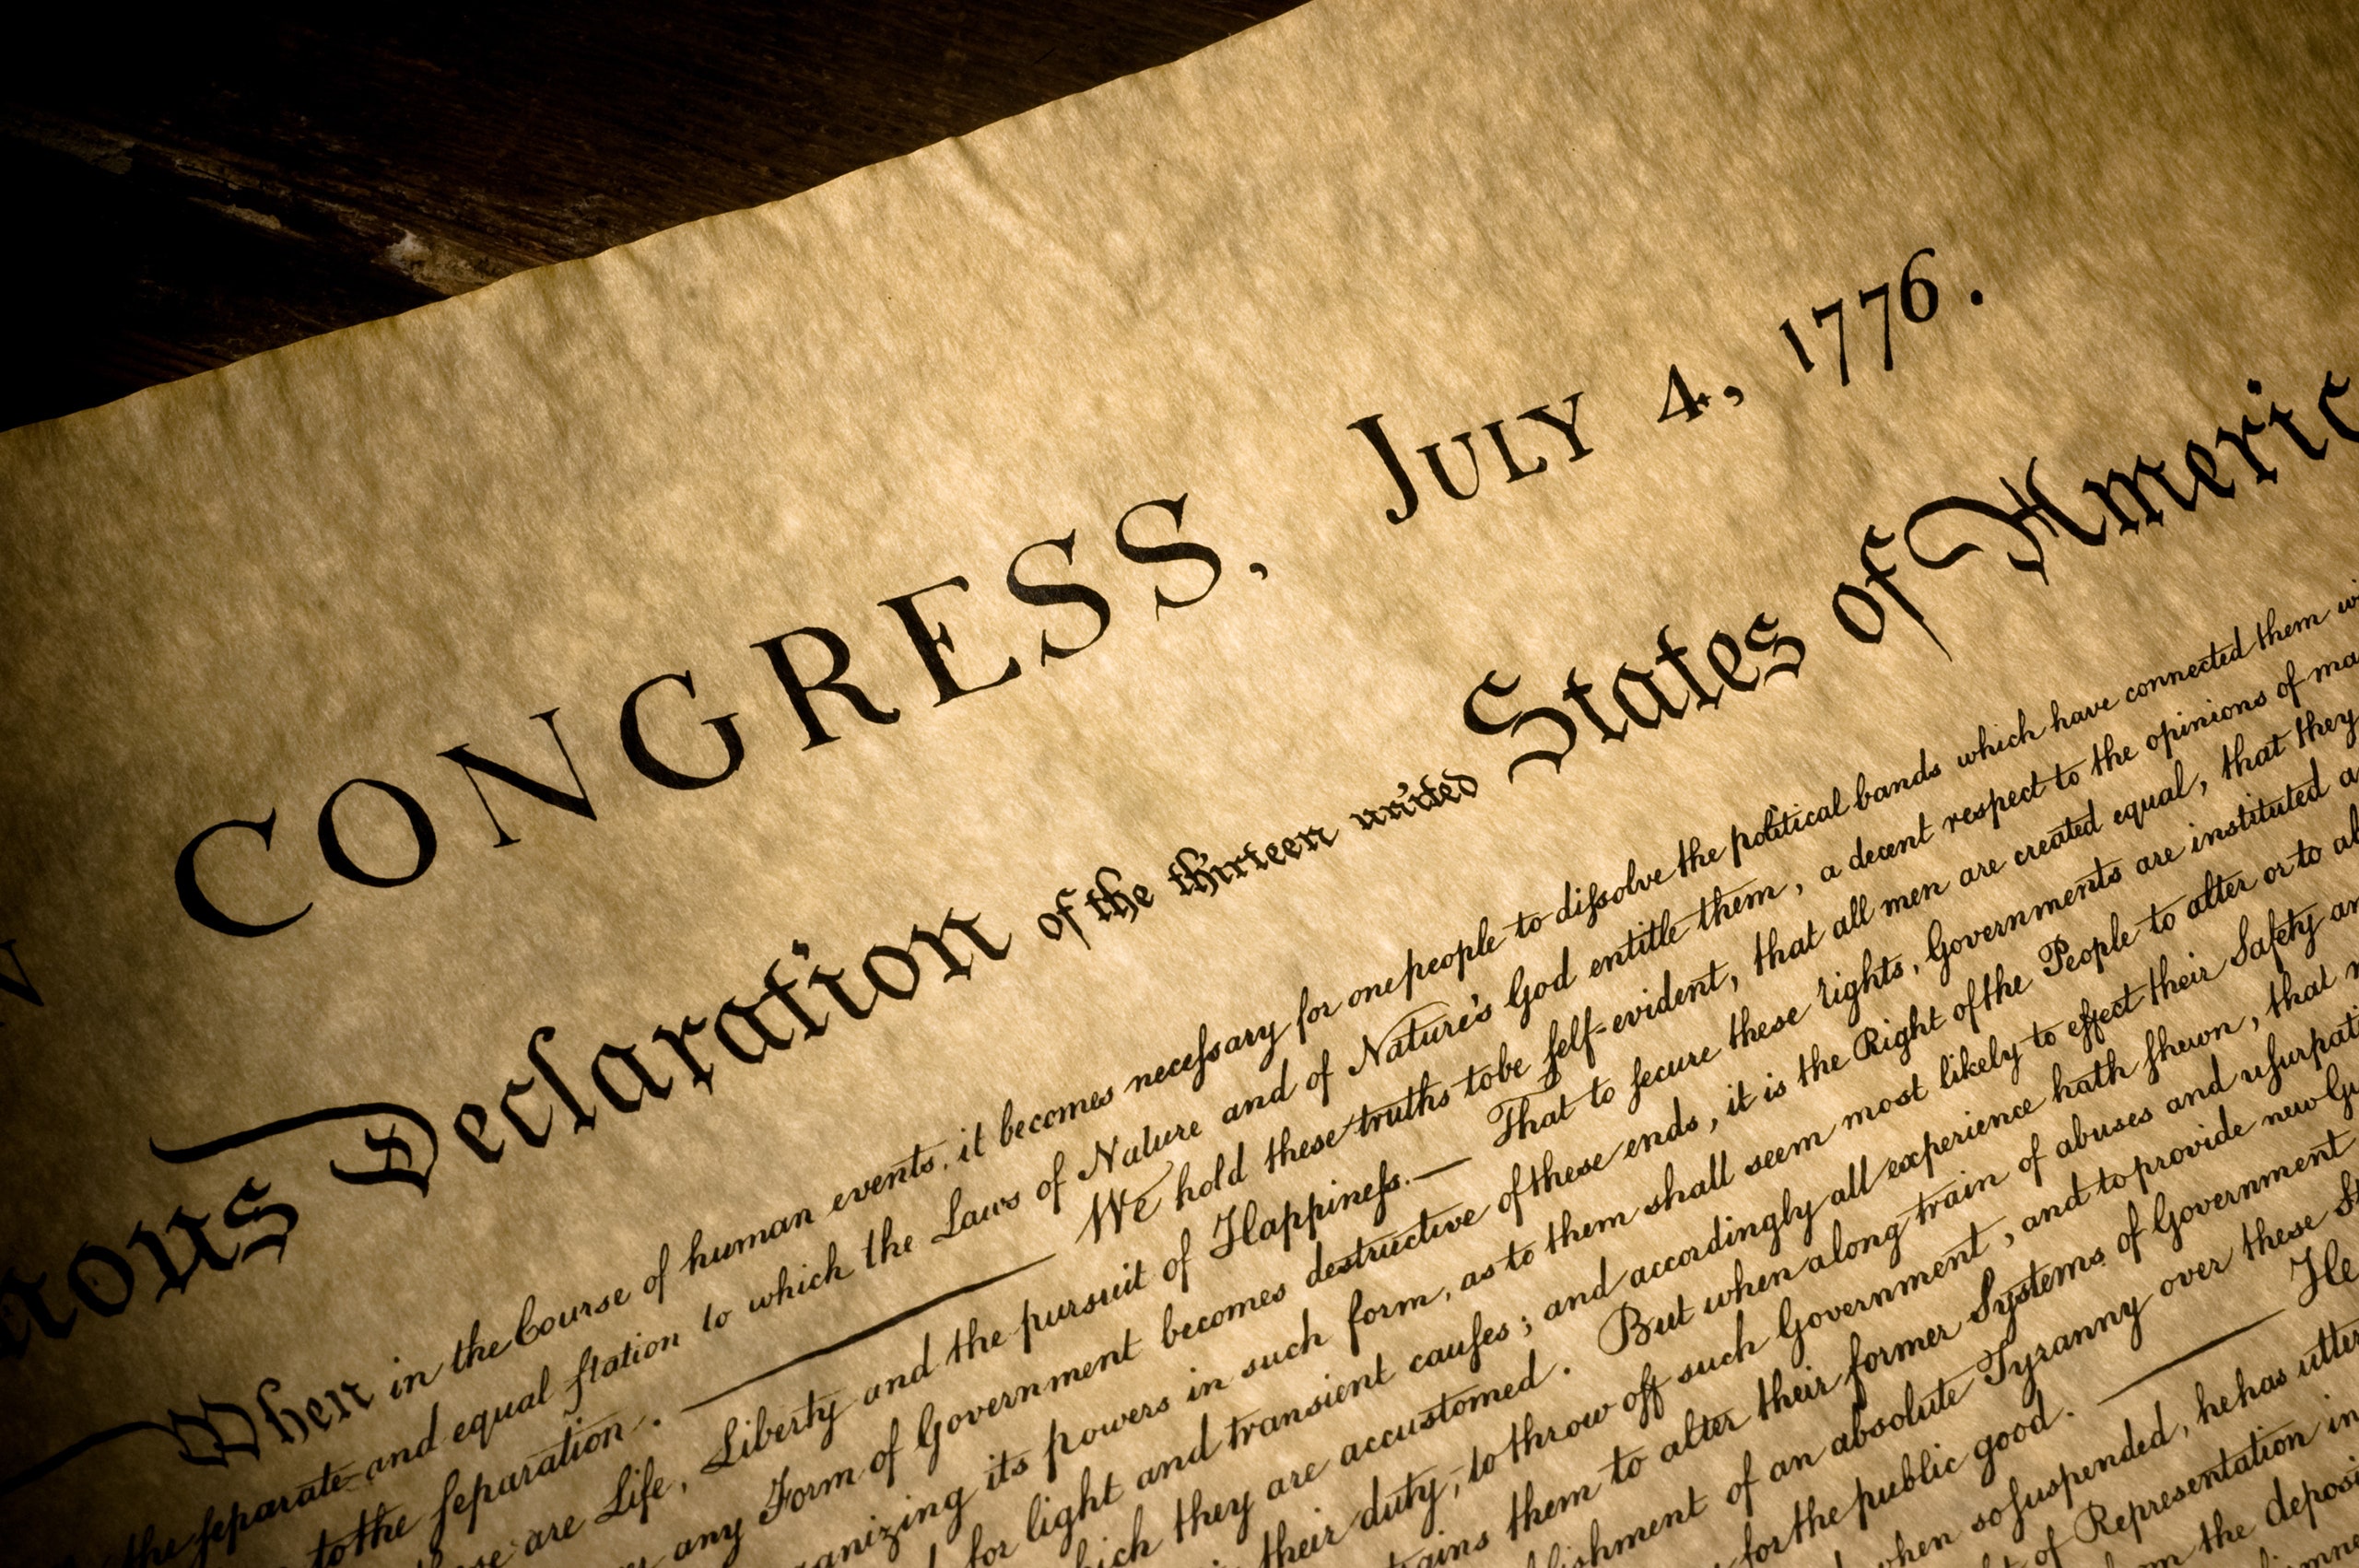 N CONGRESS, JULY 4, 1776.
mous Declaration of the thirteen united States of Americ
When in the Course of human events, it becomes neceſsary for one people to diſsolve the political bands which have connected them wi
the ſeparate and equal ſtation to which the Laws of Nature and of Nature's God entitle them, a decent respect to the opinions of ma
to the ſeparation. —— We hold these truths to be ſelf-evident, that all men are created equal, that they
se are Life, Liberty and the pursuit of Happineſs.— That to ſecure these rights, Governments are instituted a
any Form of Government becomes destructive of these ends, it is the Right of the People to alter or to ab
anizing its powers in such form, as to them shall seem most likely to effect their Safety an
for light and transient cauſes; and accordingly all experience hath ſhewn, that m
hich they are accustomed. But when a long train of abuses and uſurpati
their duty, to throw off such Government, and to provide new Gu
rains them to alter their former Systems of Government
lishment of an absolute Tyranny over these St
for the public good. —— He
when so ſuspended, he has utter
of Representation in
the deposi